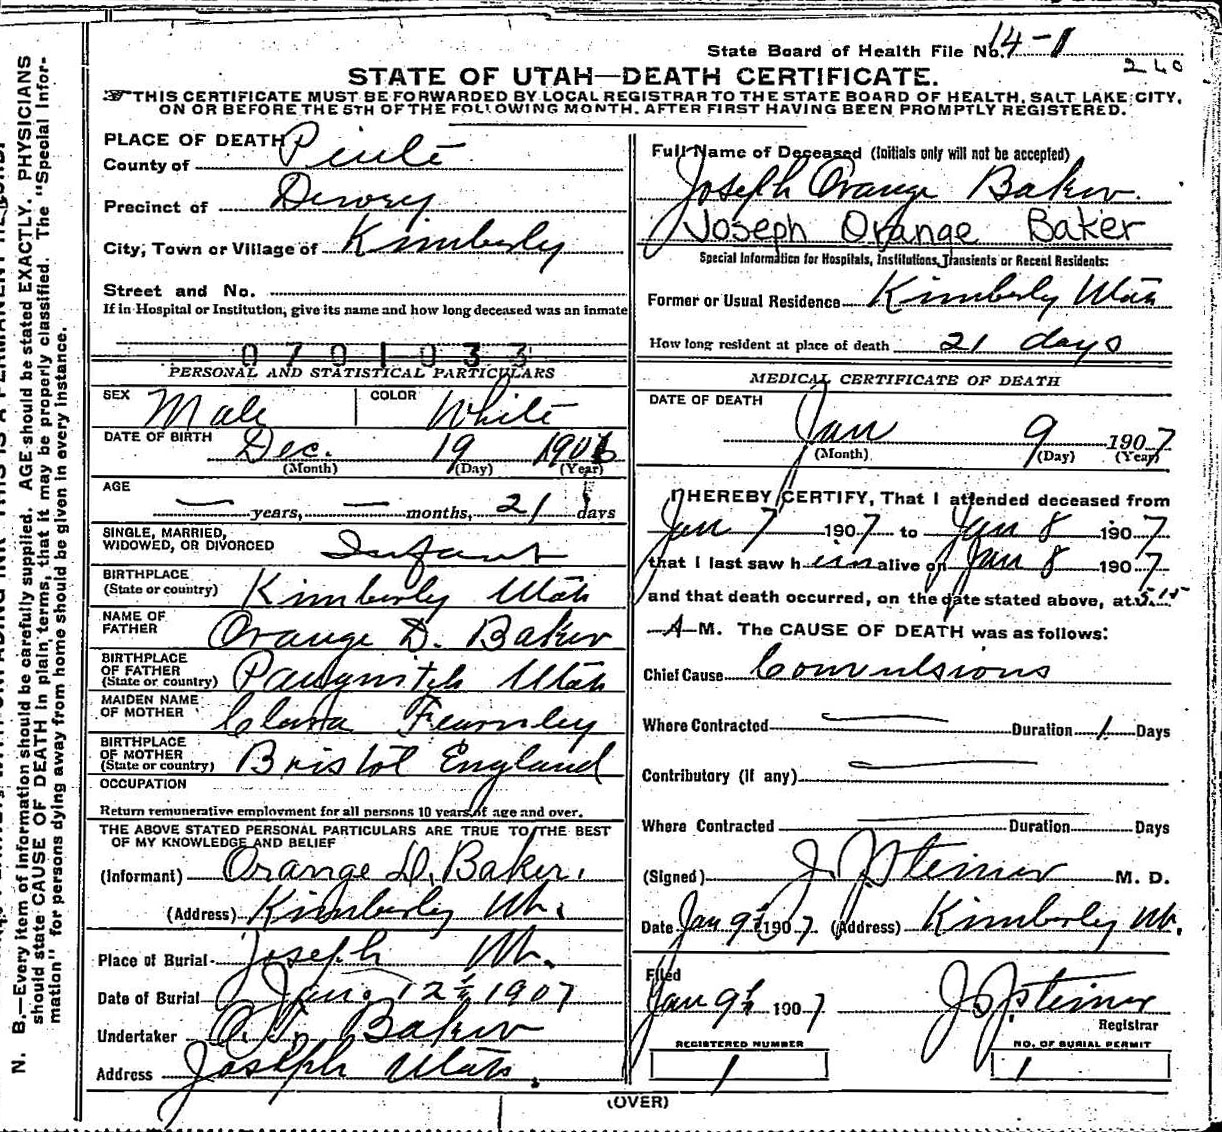 State Board of Health File No. 14-1
260
STATE OF UTAH—DEATH CERTIFICATE.
THIS CERTIFICATE MUST BE FORWARDED BY LOCAL REGISTRAR TO THE STATE BOARD OF HEALTH, SALT LAKE CITY,
ON OR BEFORE THE 5TH OF THE FOLLOWING MONTH. AFTER FIRST HAVING BEEN PROMPTLY REGISTERED.
PLACE OF DEATH
County of Piute
Precinct of Dewey
City, Town or Village of Kimberly
Street and No.
If in Hospital or Institution, give its name and how long deceased was an inmate
0701033
PERSONAL AND STATISTICAL PARTICULARS
SEX Male COLOR White
DATE OF BIRTH Dec. 19 1906
(Month) (Day) (Year)
AGE
— years, — months, 21 days
SINGLE, MARRIED,
WIDOWED, OR DIVORCED Infant
BIRTHPLACE
(State or country) Kimberly Utah
NAME OF
FATHER Orange D. Baker
BIRTHPLACE
OF FATHER
(State or country) Panguitch Utah
MAIDEN NAME
OF MOTHER Clara Fearnley
BIRTHPLACE
OF MOTHER
(State or country) Bristol England
OCCUPATION
Return remunerative employment for all persons 10 years of age and over.
THE ABOVE STATED PERSONAL PARTICULARS ARE TRUE TO THE BEST
OF MY KNOWLEDGE AND BELIEF
(Informant) Orange D. Baker.
(Address) Kimberly Ut.
Place of Burial Joseph Ut.
Date of Burial Jan. 12th 1907
Undertaker O. D. Baker
Address Joseph Utah.
Full Name of Deceased (Initials only will not be accepted)
Joseph Orange Baker.
Joseph Orange Baker
Special Information for Hospitals, Institutions, Transients or Recent Residents:
Former or Usual Residence Kimberly Utah
How long resident at place of death 21 days
MEDICAL CERTIFICATE OF DEATH
DATE OF DEATH
Jan 9 1907
(Month) (Day) (Year)
I HEREBY CERTIFY, That I attended deceased from
Jan 7 1907 to Jan 8 1907
that I last saw him alive on Jan 8 1907
and that death occurred, on the date stated above, at 5.15
A M. The CAUSE OF DEATH was as follows:
Chief Cause Convulsions
Where Contracted — Duration 1 Days
Contributory (if any) —
Where Contracted — Duration Days
(Signed) J. J. Steiner M. D.
Date Jan 9th 1907 (Address) Kimberly Ut.
Filed
Jan 9th 1907 J. J. Steiner
Registrar
REGISTERED NUMBER
1
NO. OF BURIAL PERMIT
1
(OVER)
N. B.—Every item of information should be carefully supplied. AGE should be stated EXACTLY. PHYSICIANS
should state CAUSE OF DEATH in plain terms, that it may be properly classified. The "Special Infor-
mation" for persons dying away from home should be given in every instance.